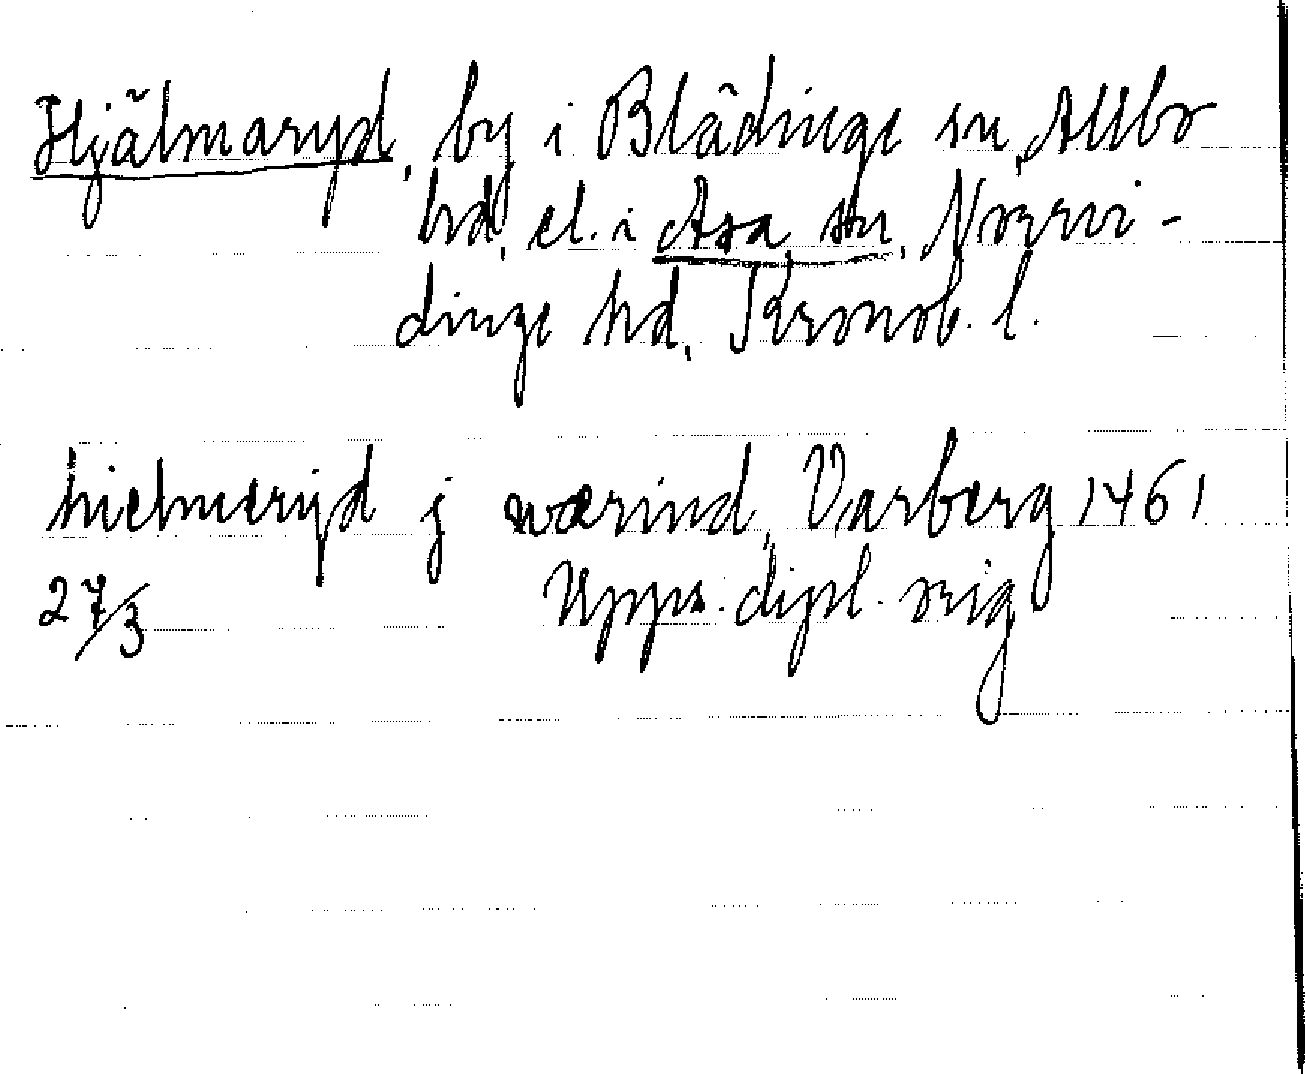 Hjälmaryd, by i Blädinge sn, Allbo
hd, el. i Asa sn, Norrvi-
dinge hd, Kronob. l.
hielmeryd j wærind, Varberg 1461
27/3 Upps. dipl. orig